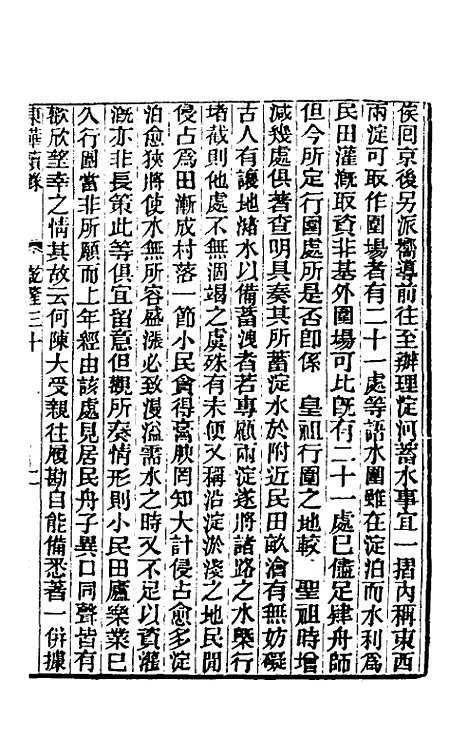 俟回京後另派嚮導前往至辦理淀河蓄水事宜一摺內稱東西
兩淀可取作圍場者有二十一處等語水圍雖在淀泊而水利爲
民田灌漑取資非基外圍場可比旣有二十一處已儘足肆舟師
但今所定行圍處所是否卽係　皇祖行圍之地較　聖祖時增
減幾處俱著查明具奏其所蓄淀水於附近民田畝澮有無妨礙
古人有讓地瀦水以備蓄洩者若專顧兩淀遂將諸路之水槩行
堵截則他處不無涸竭之虞殊有未便又稱沿淀淤淺之地民間
侵占爲田漸成村落一節小民貪得膏腴罔知大計侵占愈多淀
泊愈狹將使水無所容盛漲必致漫溢需水之時又不足以資灌
漑亦非長策此等俱宜留意但觀所奏情形則小民田廬樂業已
久行圍當非所願而上年經由該處見居民舟子異口同聲皆有
歡欣望幸之情其故云何陳大受親往履勘自能備悉著一併據
東華續錄　乾隆三十　二